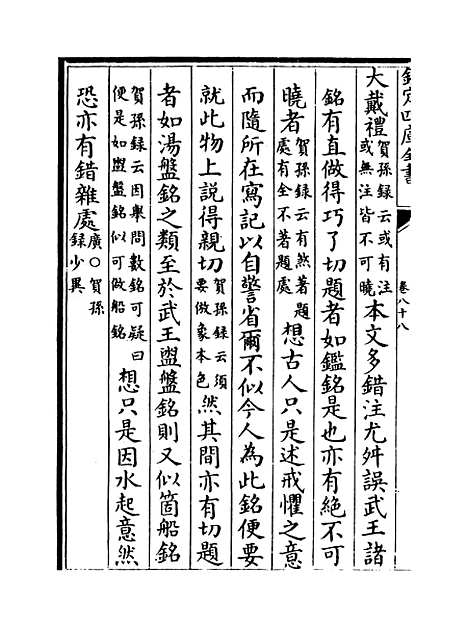 欽定四庫全書
卷八十八
大戴禮賀孫録云或有注或無注皆不可曉本文多錯注尤舛誤武王諸
銘有直做得巧了切題者如鑑銘是也亦有絶不可
曉者賀孫録云有煞著題處有全不著題處想古人只是述戒懼之意
而隨所在寫記以自警省爾不似今人為此銘便要
就此物上説得親切賀孫録云須要做象本色然其間亦有切題
者如湯盤銘之類至於武王盥盤銘則又似箇船銘
賀孫録云因舉問數銘可疑曰便是如盥盤銘似可做船銘想只是因水起意然
恐亦有錯雜處廣○賀孫録少異